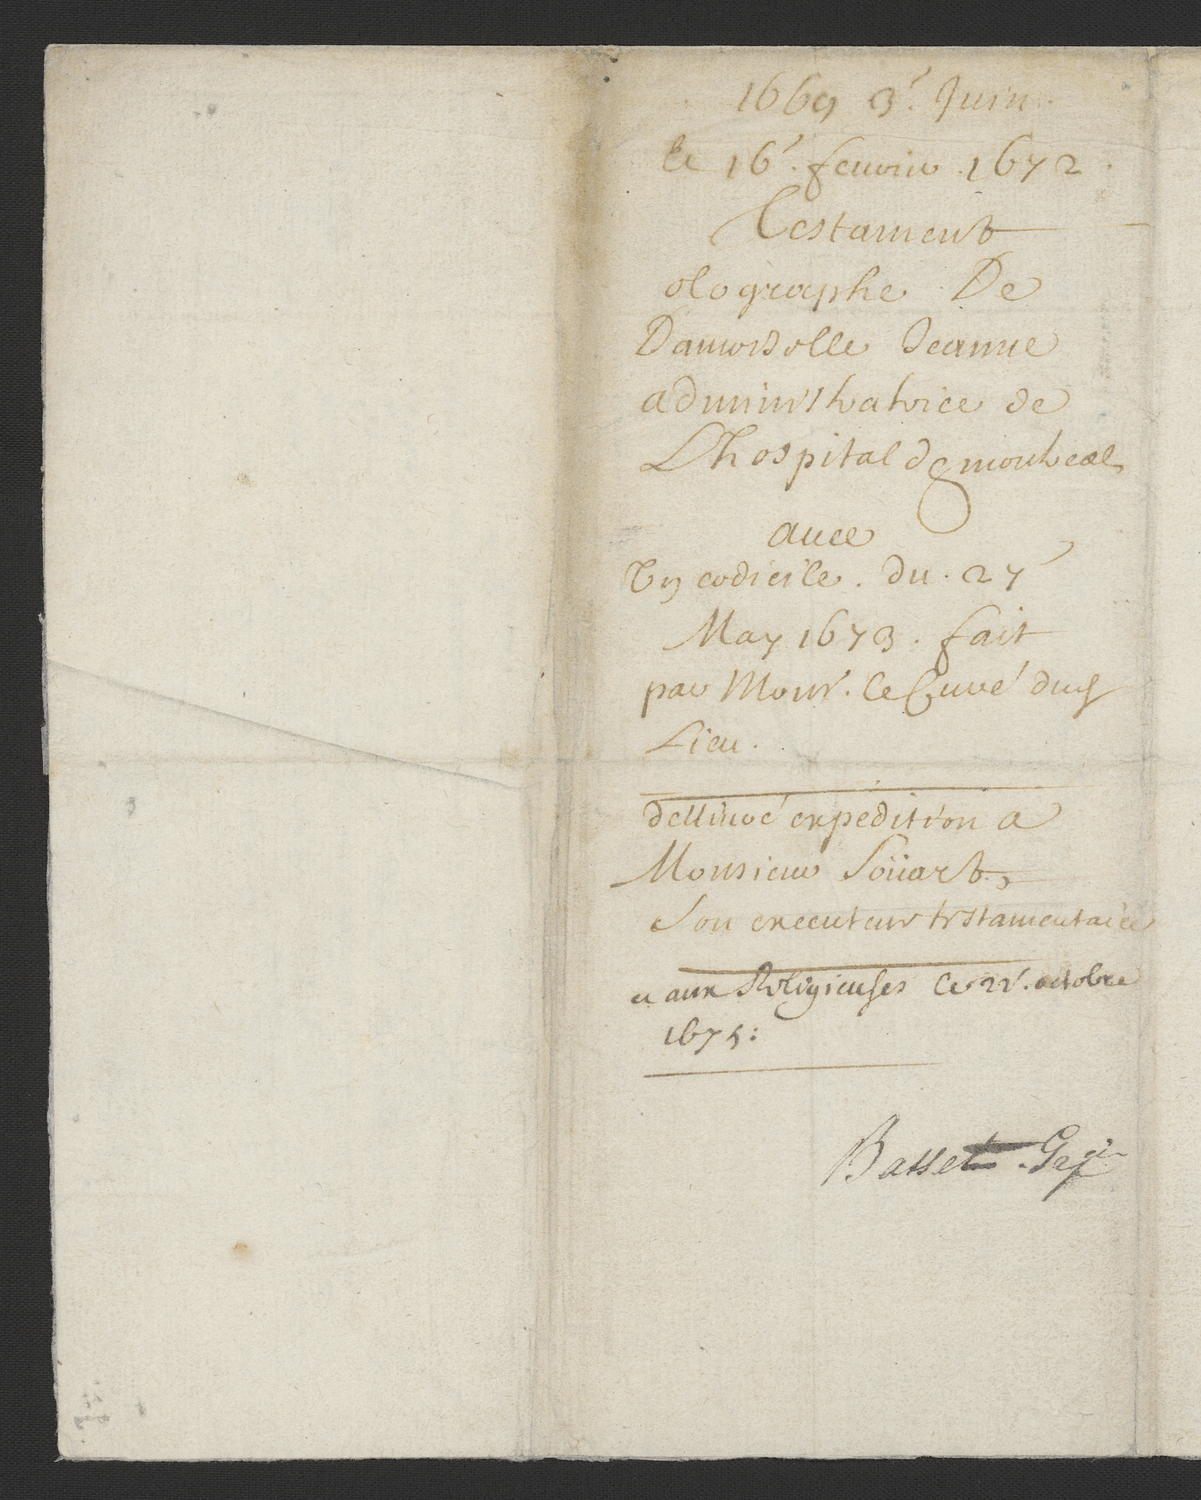 1669 3e. Juin.
Le 16e. feurier. 1672.
Testament
olographe De
Damoiselle Jeanne
administratrice de
Lhospital de montreal
auec
Un codicile. du. 27e
May 1673. fait
par Monsr. le Curé dud
Lieu.
delliuré expedition a
Monsieur Soüart,
Son executeur testamentaire
et aux Religieuses Ce 22e. octobre
1675:
Basset Greffier